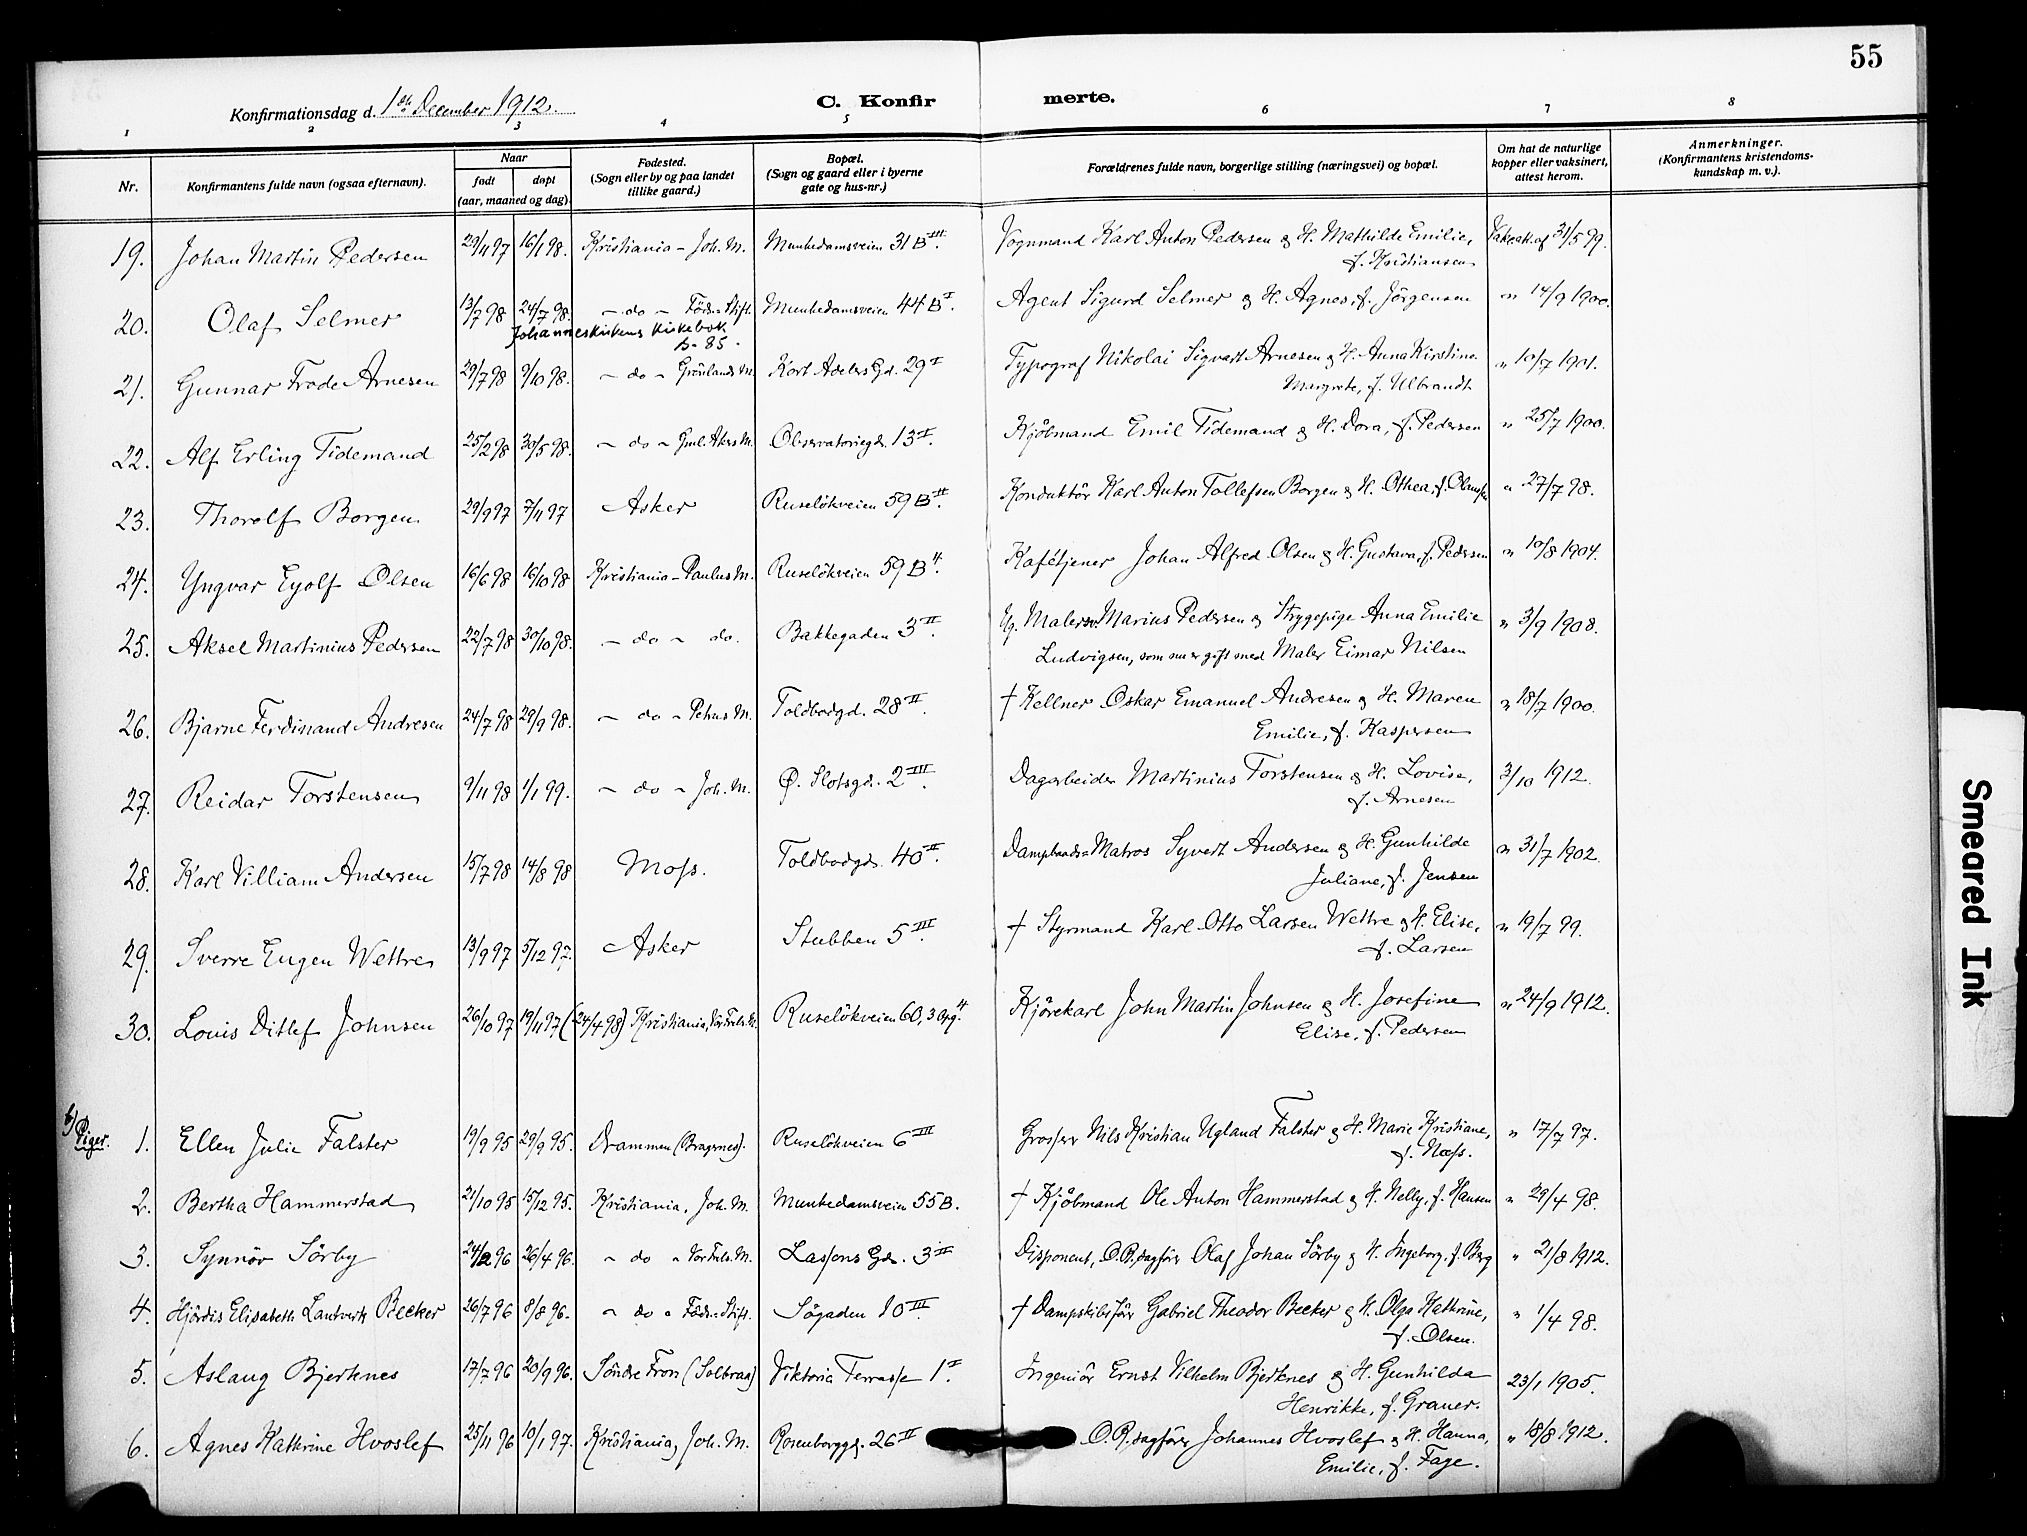 55
Konfirmationsdag d. 1ste December 1912.
C. Konfirmerte.
1 2 3 4 5 6 7 8
Nr. Konfirmantens fulde navn (ogsaa efternavn). Naar født døpt (aar, maaned og dag). Fødested. (Sogn eller by og paa landet tillike gaard.) Bopæl. (Sogn og gaard eller i byerne gate og hus-nr.) Forældrenes fulde navn, borgerlige stilling (næringsvei) og bopæl. Om hat de naturlige kopper eller vaksinert, attest herom. Anmerkninger. (Konfirmantens kristendomskundskap m. v.).
19. Johan Martin Pedersen 29/11 97 16/1 98. Kristiania - Joh. M. Munkedamsveien 31 B III. Vognmand Karl Anton Pedersen & H. Mathilde Emilie, Vakc.at. af 31/5 99.
f. Kristiansen
20. Olaf Selmer 13/7 98 24/7 98. - do - Föds.-Stift. Munkedamsveien 44 B I. Agent Sigurd Selmer & H. Agnes, f. Jörgensen " 14/9 1900.
Johanneskirkens kirkebok
s. 85.
21. Gunnar Frode Arnesen 29/7 98 9/10 98. - do - Grönlands M. Kort Adelers Gd. 29 I Typograf Nikolai Sigvart Arnesen & H. Anna Kirstine " 10/7 1901.
Margrete, f. Ulbrandt
22. Alf Erling Tidemand 25/2 98 30/5 98. - do - Gml. Akers M. Observatoriegd. 13 I. Kjöbmand Emil Tidemand & H. Dora, f. Pedersen " 25/7 1900.
23. Thorolf Borgen 29/9 97 7/11 97 Asker Ruselökveien 59 B II. Konduktör Karl Anton Tollefsen Borgen & H. Othea, f. Olausen " 27/7 98.
24. Yngvar Eyolf Olsen 16/6 98 16/10 98 Kristiania - Paulus M. Ruselökveien 59 B 4. Kafétjener Johan Alfred Olsen & H. Gustava, f. Pedersen " 10/8 1904.
25. Aksel Martinius Pedersen 22/7 98 30/10 98. - do - do. Bakkegaden 3 II. Ug. Malersv. Marius Pedersen & Strygepige Anna Emilie " 3/9 1908.
Ludvigsen, som nu er gift med Maler Eimar Nilsen
26. Bjarne Ferdinand Andresen 24/7 98 29/9 98. - do - Petrus M. Toldbodgd. 28 II. † Kellner Oskar Emanuel Andresen & H. Maren " 18/7 1900.
Emilie, f. Kaspersen
27. Reidar Torstensen 9/11 98 1/1 99. - do - Joh. M. Ø. Slotsgd. 2 III. Dagarbeider Martinius Torstensen & H. Lovise, 3/10 1912.
f. Arnesen
28. Karl Villiam Andersen 15/7 98 14/8 98 Moss. Toldbodgd. 40 II. Dampbaads-Matros Syvert Andersen & H. Gunhilde " 31/7 1902.
Juliane, f. Jensen
29. Sverre Eugen Wettre 13/9 97 5/12 97. Asker Stubben 5 III. † Styrmand Karl Otto Larsen Wettre & H. Elise, " 19/7 99.
f. Larsen
30. Louis Ditlef Johnsen 26/10 97 19/11 97 (24/4 98) Kristiania, Vor Frels. M. Ruselökveien 60, 3 Opg. 4 Kjörekarl John Martin Johnsen & H. Josefine " 24/9 1912.
Elise, f. Pedersen
b) Piger.
1. Ellen Julie Falster 19/9 95 29/9 95. Drammen (Bragernes). Ruselökveien 6 III Grosser Nils Kristian Ugland Falster & H. Marie Kristiane, " 17/7 97.
f. Næss.
2. Bertha Hammerstad 21/10 95 15/12 95. Kristiania, Joh. M. Munkedamsveien 55 B. † Kjöbmand Ole Anton Hammerstad & H. Nelly, f. Hansen " 29/4 98.
3. Synnöv Sörby 24/2 96 26/4 96. - do - Vor Frels. M. Lassons Gd. 3 II Disponent, O.R.sagförer Olaf Johan Sörby & H. Ingeborg, f. Berg " 21/8 1912.
4. Hjördis Elisabeth Lautverk Becker 26/7 96 8/8 96. - do - Föds.-Stift. Sögaden 10 III † Dampskibsförer Gabriel Theodor Becker & H. Olga Kathrine, " 1/4 98.
f. Olsen.
5. Aslaug Bjerknes 17/7 96 20/9 96. Söndre Fron (Solbraa) Viktoria Terrasse 1 I. Ingeniör Ernst Vilhelm Bjerknes & H. Gunhilda 23/1 1905.
Henrikke, f. Graner.
6. Agnes Kathrine Hvoslef 25/11 96 10/1 97. Kristiania, Joh. M. Rosenborggd. 26 II O.R.sagförer Johannes Hvoslef & H. Hanna, " 18/8 1912.
Emilie, f. Faye.
Smeared Ink